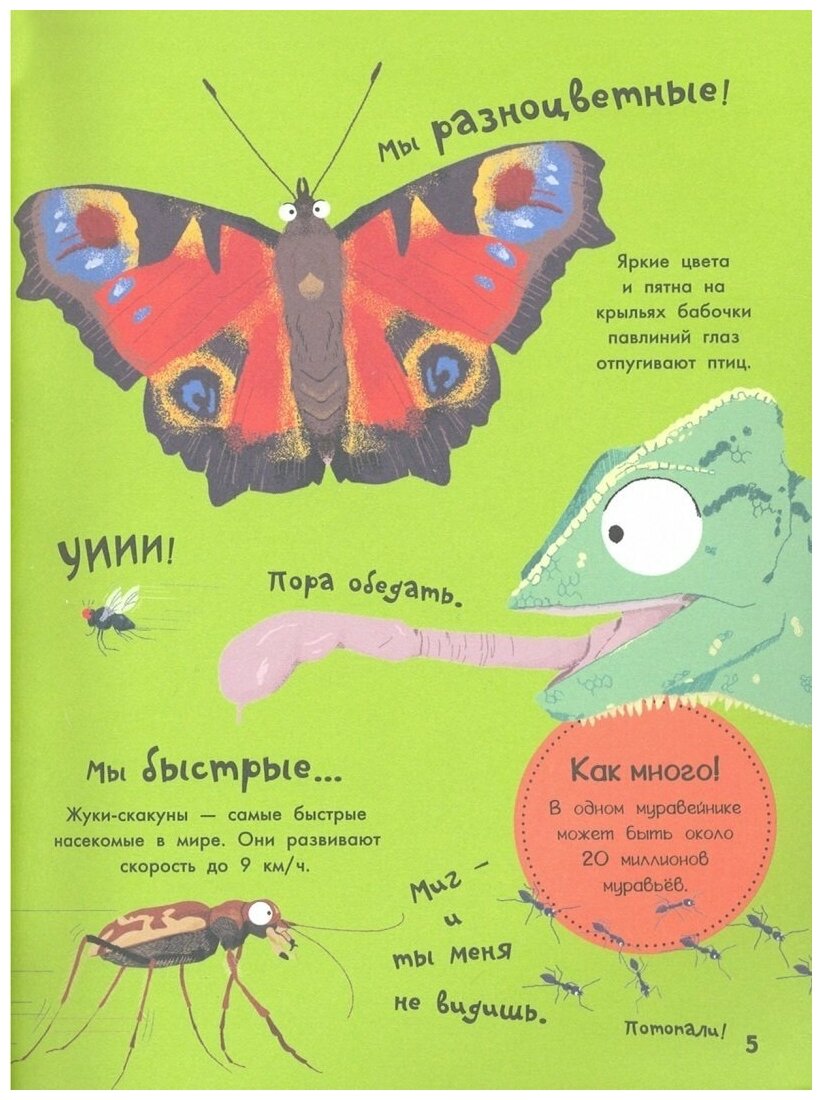 Мы разноцветные!
Яркие цвета
и пятна на
крыльях бабочки
павлиний глаз
отпугивают птиц.
УИИИ!
Пора обедать.
Мы быстрые...
Жуки-скакуны — самые быстрые
насекомые в мире. Они развивают
скорость до 9 км/ч.
Как много!
В одном муравейнике
может быть около
20 миллионов
муравьёв.
Миг –
и
ты меня
не видишь.
Потопали!
5